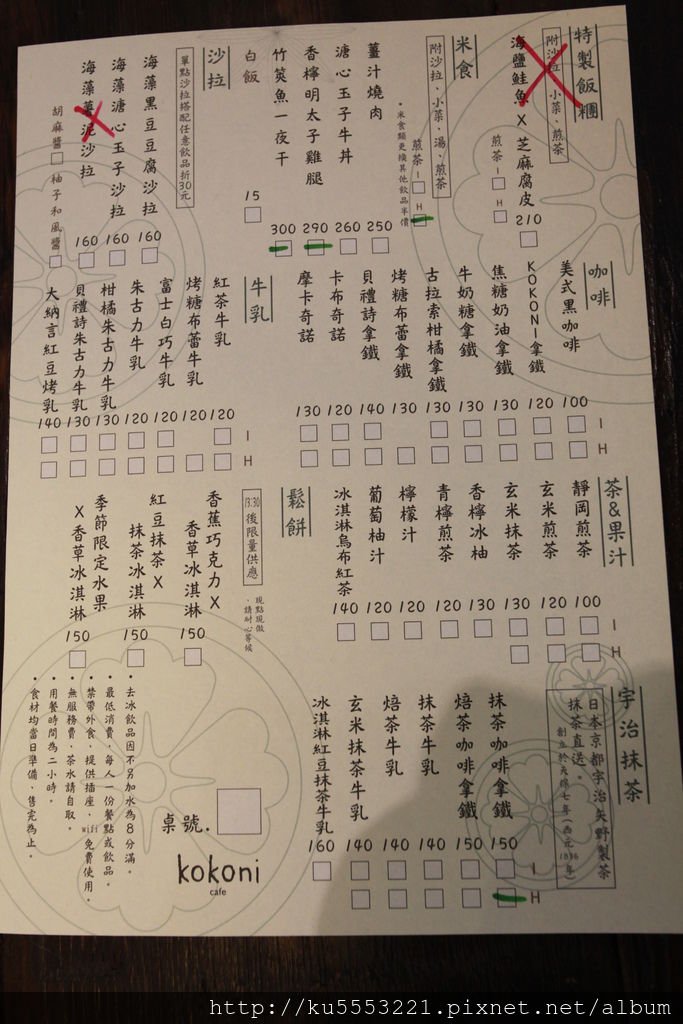 特製飯糰
附沙拉、小菜、煎茶
海鹽鮭魚 X 芝麻腐皮 210
煎茶 I H
米食
附沙拉、小菜、湯、煎茶
•米食類更換其他飲品半價
煎茶 I H
薑汁燒肉 250
溏心玉子牛丼 260
香檸明太子雞腿 290
竹筴魚一夜干 300
白飯 15
沙拉
單點沙拉搭配任意飲品折30元
海藻黑豆豆腐沙拉 160
海藻溏心玉子沙拉 160
海藻薯泥沙拉 160
胡麻醬 柚子和風醬
咖啡
美式黑咖啡 100
KOKONI拿鐵 120
焦糖奶油拿鐵 130
牛奶糖拿鐵 130
古拉索柑橘拿鐵 130
烤糖布蕾拿鐵 130
貝禮詩拿鐵 140
卡布奇諾 120
摩卡奇諾 130
I
H
牛乳
紅茶牛乳 120
烤糖布蕾牛乳 120
富士白巧牛乳 120
朱古力牛乳 120
柑橘朱古力牛乳 130
貝禮詩朱古力牛乳 130
大納言紅豆烤乳 140
I
H
茶&果汁
靜岡煎茶 100
玄米煎茶 120
玄米抹茶 130
香檸冰柚 130
青檸煎茶 120
檸檬汁 120
葡萄柚汁 120
冰淇淋烏布紅茶 140
I
H
鬆餅
13:30後限量供應
現點現做、請耐心等候
香蕉巧克力X
香草冰淇淋 150
紅豆抹茶X
抹茶冰淇淋 150
季節限定水果
X香草冰淇淋 150
宇治抹茶
日本京都宇治矢野製茶
抹茶直送。
抹茶咖啡拿鐵 150
焙茶咖啡拿鐵 150
抹茶牛乳 140
焙茶牛乳 140
玄米抹茶牛乳 140
冰淇淋紅豆抹茶牛乳 160
I
H
桌號.
kokoni
cafe
•去冰飲品因不另加水為8分滿。
•最低消費，每人一份餐點或飲品。
•禁帶外食，提供插座、wifi免費使用。
•無服務費，茶水請自取。
•用餐時間為二小時。
•食材均當日準備，售完為止。
http://ku5553221.pixnet.net/album